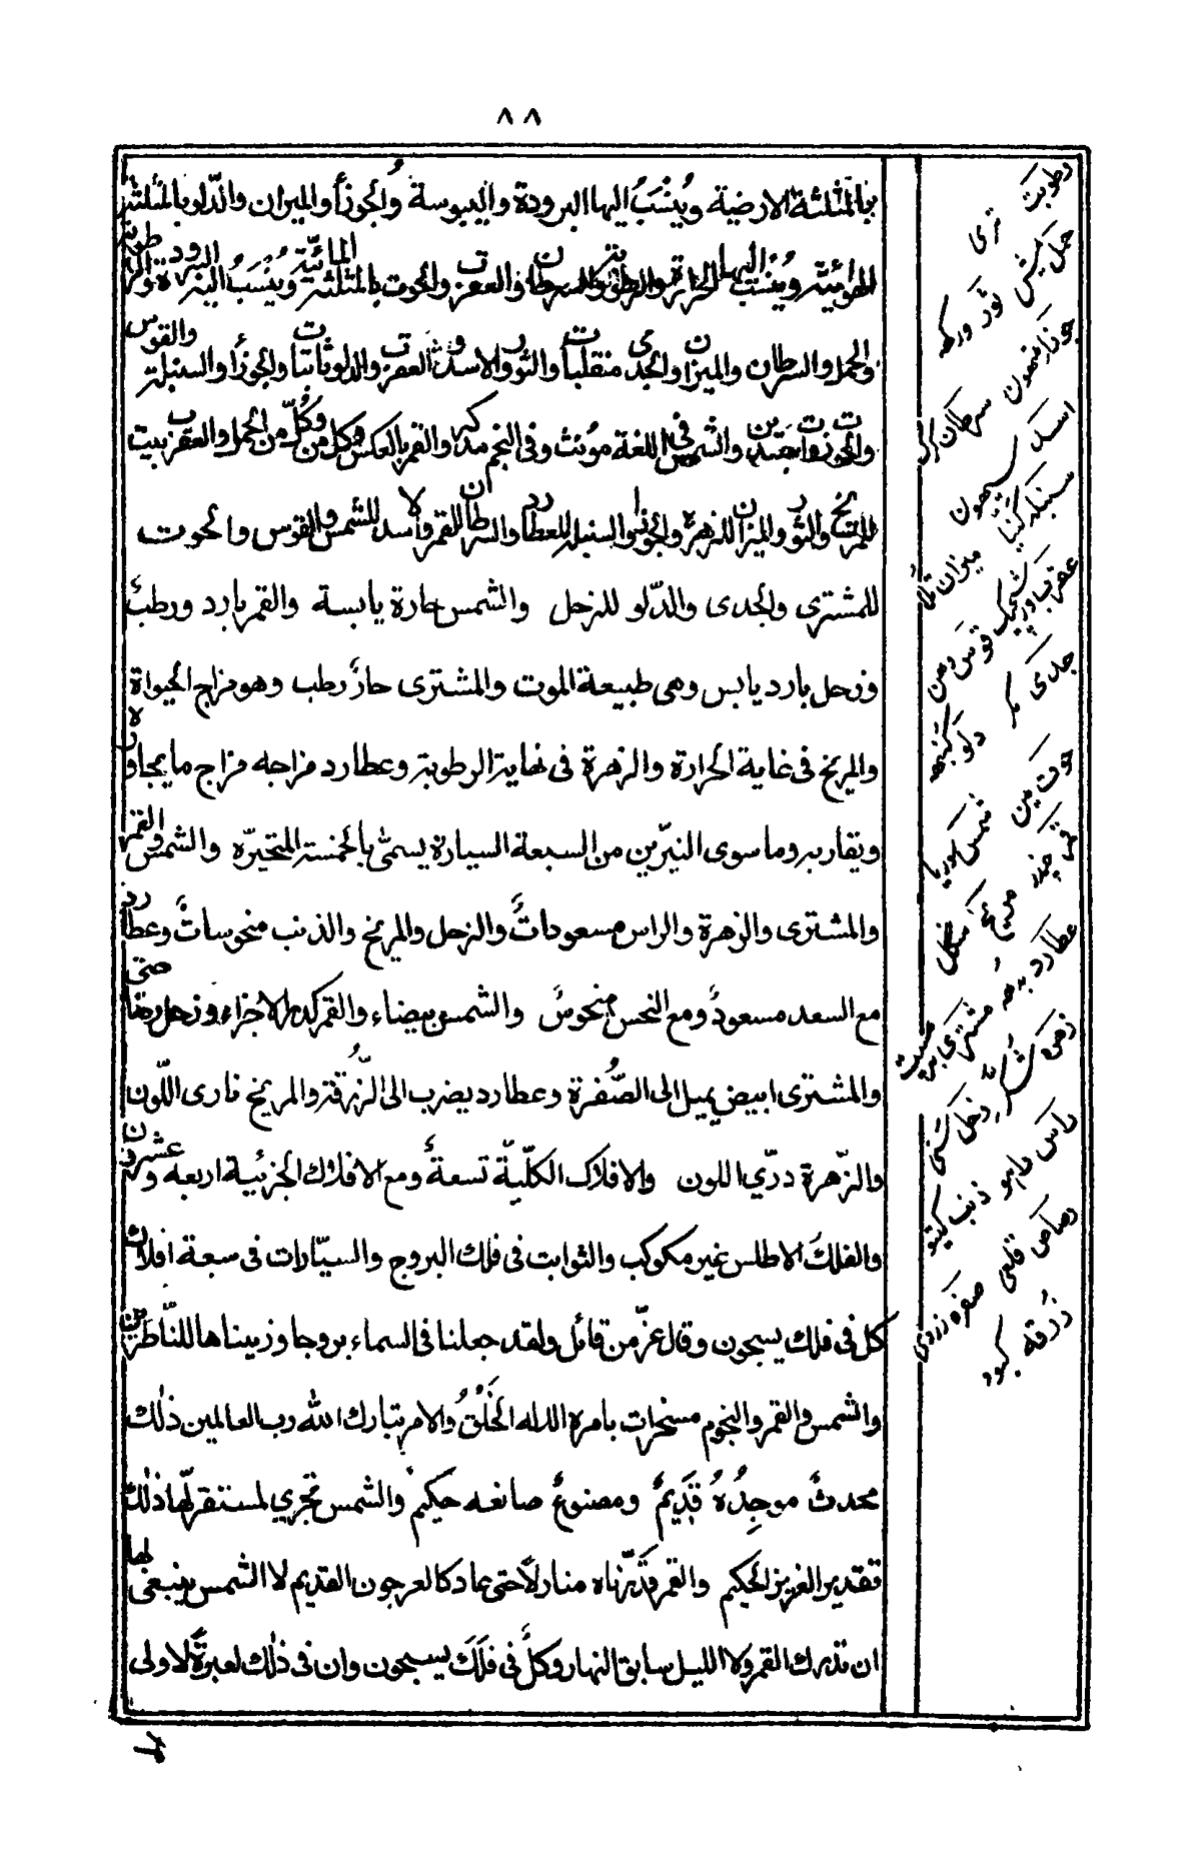 ٨٨
بالمثلثة الارضية ويُنْسَبُ اليها البرودة واليبوسة والجوزأ والميزان والدّلو بالمثلثة
الهوائيّة ويُنْسَبُ اليها الحرارة والرطوبة والسرطان والعقرب والحوت بالمثلثة المائيّة ويُنْسَبُ اليه البرودة والرطوبة
والحمل والسرطان والميزان والجدى منقلبات والثور والاسد والعقرب والدلو ثابتات والجوزأ والسنبلة والقوس
والحوت ذوات جسدين والشمس فى اللغة مؤنث وفى النجم مذكر والقمر بالعكس وكلّ من الحمل والعقرب بيت
للمريخ والثور والميزان للزهرة والجوزا والسنبلة للعطارد والسرطان للقمر والاسد للشمس والقوس والحوت
للمشترى والجدى والدّلو للزحل والشمس حارة يابسة والقمر بارد ورطب
وزحل بارد يابس وهى طبيعة الموت والمشترى حارّ رطب وهو مزاج الحيواة
والمريخ فى غاية الحرارة والزهرة فى نهاية الرطوبة وعطارد مزاجه مزاج ما يجاوره
ويقاربه وما سوى النيّرين من السبعة السيارة يسمّى بالخمسة المتحيّره والشمس والقمر
والمشترى والزهرة والراس مسعوداتٌ والزحل والمريخ والذنب منحوساتٌ وعطارد
مع السعد مسعودٌ ومع النحس منحوسٌ والشمس بيضاء والقمر كدر الاجزاء وزحل رصاصى
والمشترى ابيض يميل الى الصُّفرة وعطارد يضرب الى الزُّرقة والمريخ نارى اللّون
والزّهرة درّي اللون والافلاك الكلّيّة تسعةٌ ومع الافلاك الجزئية اربعه وعشرون
والفلك الاطلس غير مكوكب والثوابت فى فلك البروج والسيّارات فى سبعة افلاك
كل فى فلك يسبحون وقال عزّ من قائل ولقد جعلنا فى السماء بروجا وزيناها للنّاظرين
والشمس والقمر والنجوم مسخرات بامره الا له الخَلْقُ والامر تبارك الله رب العالمين ذلك
محدثٌ موجِدُهُ قَدِيمٌ ومصنوعٌ صانعه حكيمٌ والشمس تجري لمستقر لّها ذلك
تقدير العزيز الحكيم والقمر قدّرناه منازل حتى عاد كالعرجون القديم لا الشمس ينبغى لها
ان تدرك القمر ولا الليل سابق النهار وكلٌّ فى فلك يسبحون وان فى ذلك لعبرةً لاولى
رطوبت ترى
حمل ميش ثور وركهه
جوزا متهون سرطان كرك
اسد سنگهون
سنبله كنيا ميزان تلا
عقرب برچيك قوس دهن
جدى مكر دلو كنبهه
حوت مين شمس سوريا
قمر چندر مريخ منگل
عطارد بدهه مشترى برهسپت
زهره شكر زحل سنى
راس راهو ذنب كيتو
رصاص قلعى صفره زردى
زرقه كبود